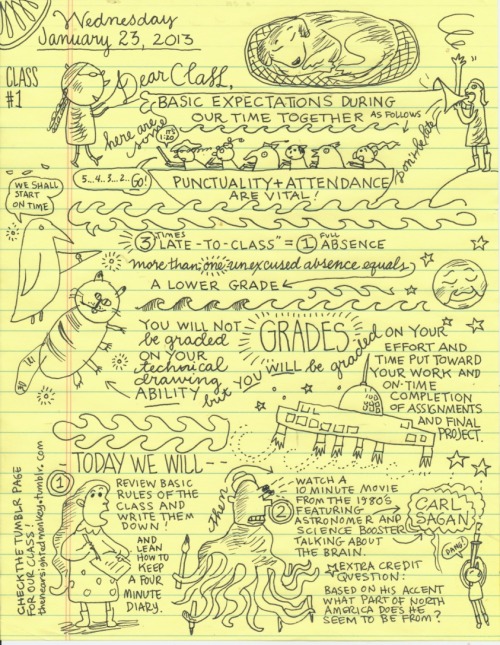 Wednesday
January 23, 2013
CLASS
#1
Dear Class,
BASIC EXPECTATIONS DURING
OUR TIME TOGETHER AS FOLLOWS
here are
some
IT'S
1:20
don't be late
5...4...3...2... Go!
PUNCTUALITY + ATTENDANCE
ARE VITAL!
WE SHALL
START
ON TIME
3 TIMES "LATE-TO-CLASS" = 1 FULL ABSENCE
more than one unexcused absence equals
A LOWER GRADE
YOU WILL NOT
be graded
ON YOUR
technical
drawing
ABILITY
but YOU WILL be graded
GRADES
ON YOUR
EFFORT AND
TIME PUT TOWARD
YOUR WORK AND
ON-TIME
COMPLETION
OF ASSIGNMENTS
AND FINAL
PROJECT.
- TODAY WE WILL - -
1
REVIEW BASIC
RULES OF THE
CLASS AND
WRITE THEM
DOWN!
AND
LEAN
HOW TO
KEEP
A FOUR
MINUTE
DIARY.
then
2
WATCH A
10 MINUTE MOVIE
FROM THE 1980'S
FEATURING
ASTRONOMER AND
SCIENCE BOOSTER
TALKING ABOUT
THE BRAIN.
CARL
SAGAN
DANG!
EXTRA CREDIT
QUESTION:
BASED ON HIS ACCENT
WHAT PART OF NORTH
AMERICA DOES HE
SEEM TO BE FROM?
CHECK THE TUMBLR PAGE
FOR OUR CLASS
thenearsightedmonkey.tumblr.com